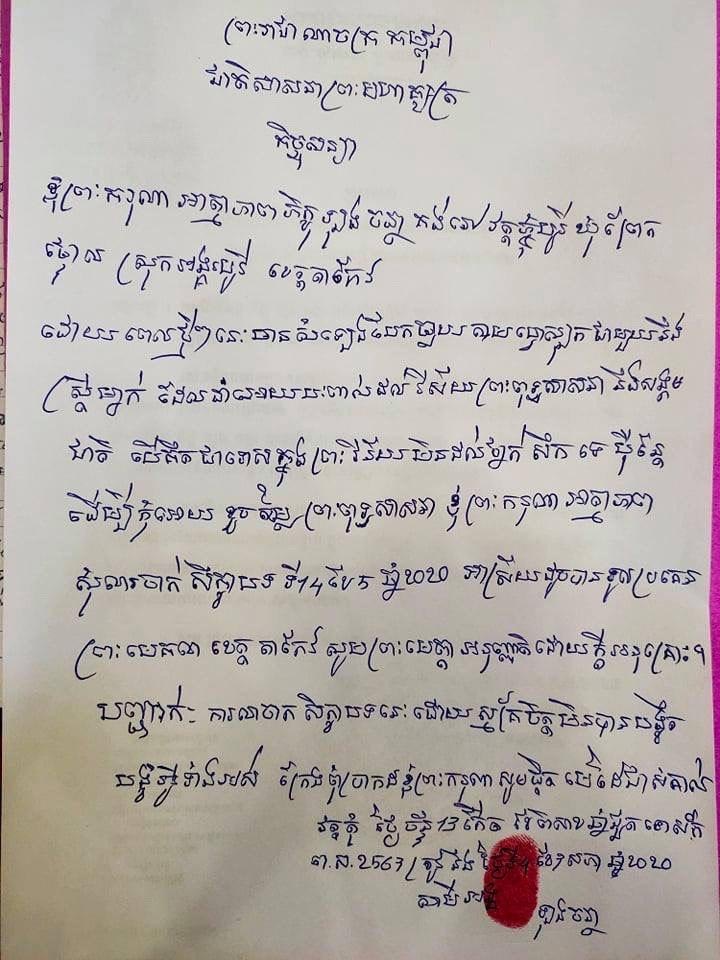 ព្រះរាជាណាចក្រកម្ពុជា
ជាតិ សាសនា ព្រះមហាក្សត្រ
កិច្ចសន្យា
ខ្ញុំព្រះករុណា អាត្មាភាព ភិក្ខុ ឡុង ចន្ថា គង់នៅ វត្តភ្នំបូរី ឃុំ ព្រែក
ផ្ទោល ស្រុកអង្គរបូរី ខេត្តតាកែវ
ដោយពេលថ្មីៗនេះ មានសំឡេងបែកធ្លាយ តាមហ្វេស្បុក ជាមួយនឹង
ស្ត្រីម្នាក់ ដែលនាំអោយប៉ះពាល់ដល់ វិស័យព្រះពុទ្ធសាសនា និងសង្គម
ជាតិ បើគិតជាទោសក្នុងព្រះវិន័យមិនដល់ថ្នាក់ សឹក ទេ ប៉ុន្តែ
ដើម្បីកុំអោយ ខូចតម្លៃ ព្រះពុទ្ធសាសនា ខ្ញុំព្រះករុណា អាត្មាភាព
សុំលាចាក សិក្ខាបទ ទី14 ខែ5 ឆ្នាំ២០២០ អាស្រ័យដូចបានទូលប្រគេន
ព្រះមេគណ ខេត្ត តាកែវ សូមព្រះមេត្តា អនុញ្ញាតិដោយក្តីអនុគ្រោះ។
បញ្ជាក់:- ការលាចាក សិក្ខាបទនេះ ដោយស្ម័គ្រចិត្តមិនបានបង្ខិត
បង្ខំអ្វីទាំងអស់ ក្រែងពុំប្រាកដខ្ញុំព្រះករុណា សូមផ្តិត មេដៃជាសំគាល់
វត្តភ្នំ ថ្ងៃ ច័ន្ទ 13កើត ខែពិសាខ ឆ្នាំជូត ទោស័ក
ព.ស.2563 ត្រូវនឹង ថ្ងៃទី4 ខែឧសភា ឆ្នាំ២០២០
សាមីខ្លួន
ឡុងចន្ថា